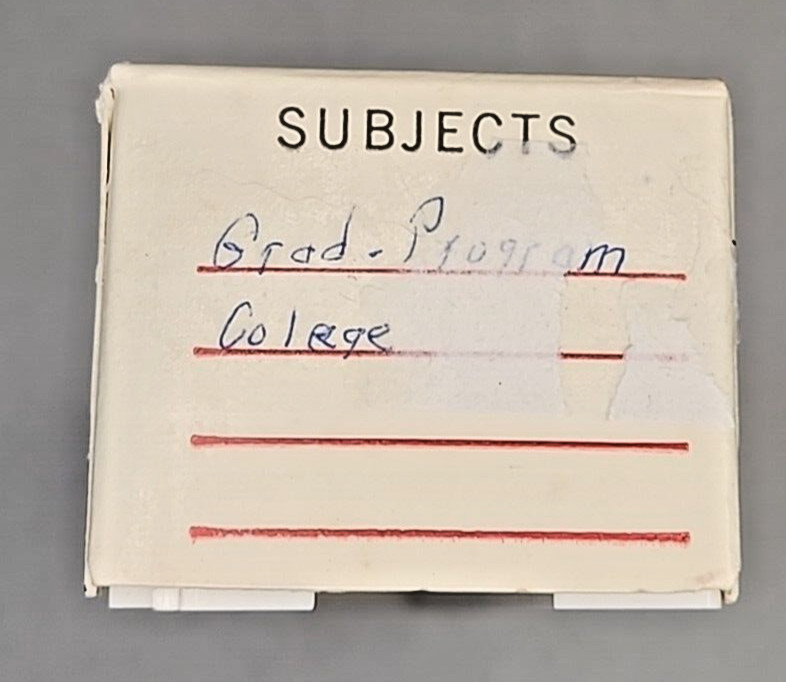 SUBJECTS
Grad. Program
Colege